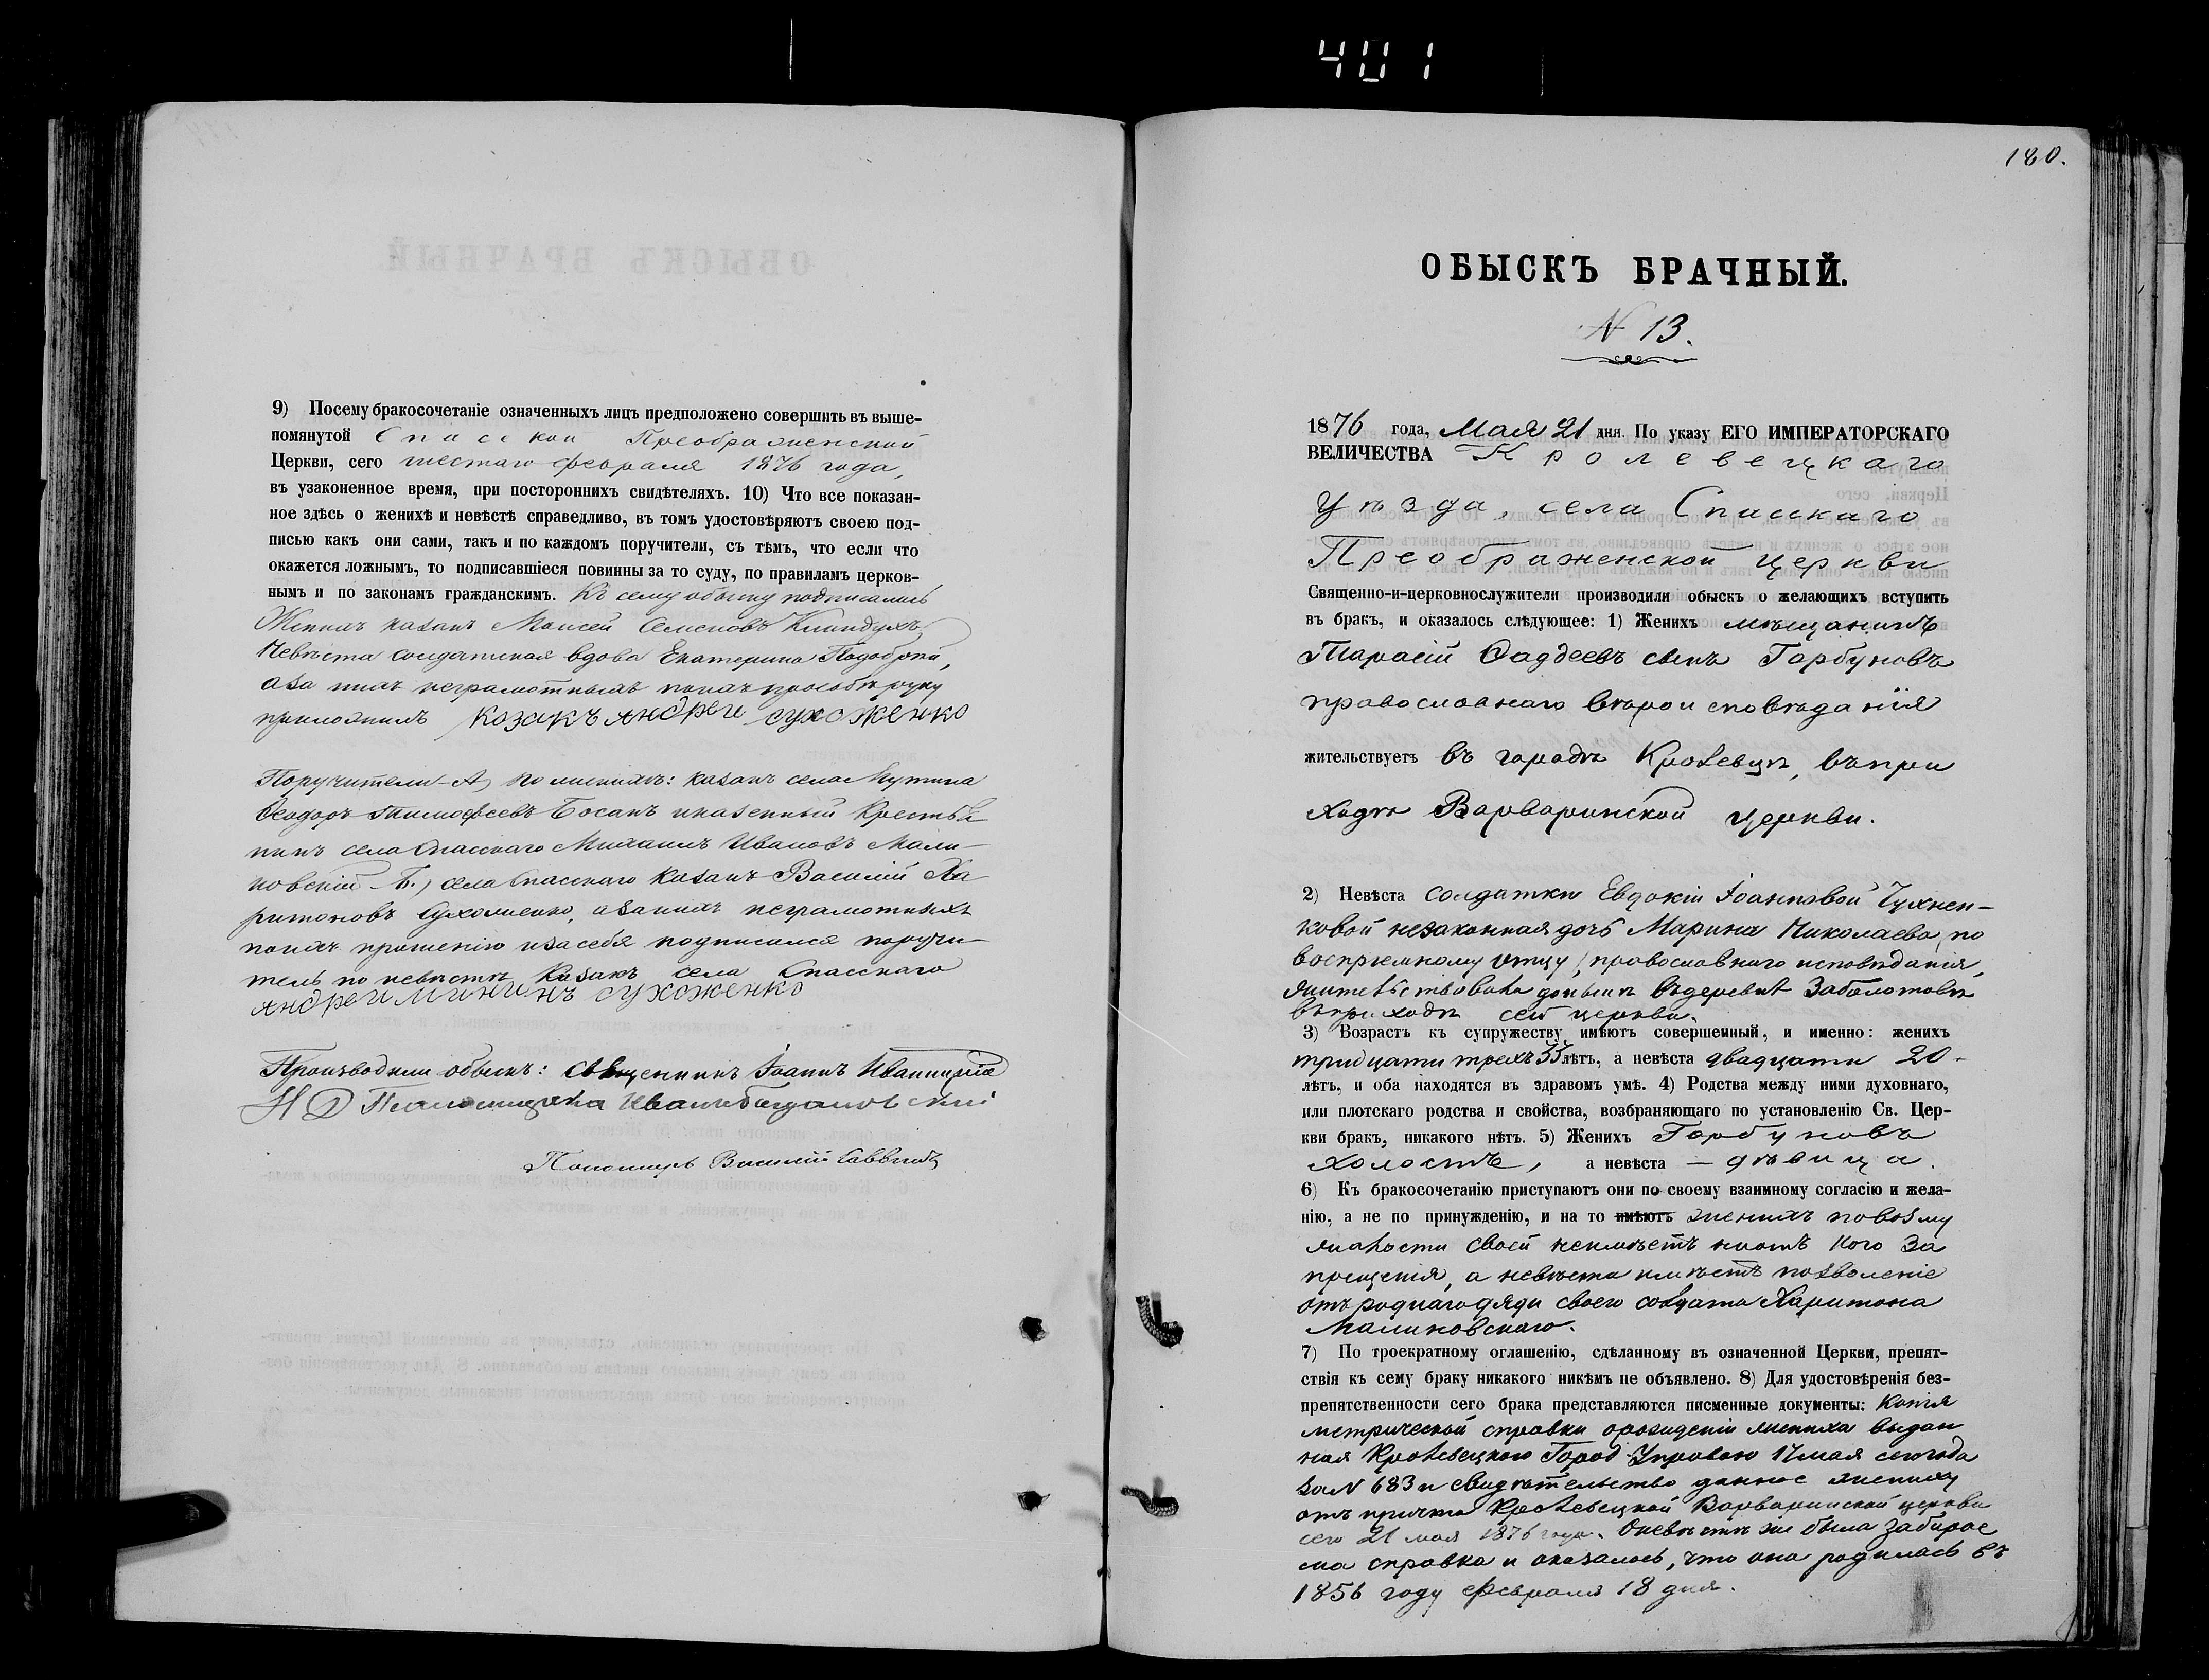 401
9) Посему бракосочетаніе означенныхъ лицъ предположено совершить въ выше-
помянутой Спасской Преображенской
Церкви, сего шестаго февраля 1876 года,
въ узаконенное время, при постороннихъ свидѣтеляхъ. 10) Что все показан-
ное здѣсь о женихѣ и невѣстѣ справедливо, въ томъ удостовѣряютъ своею под-
писью какъ они сами, такъ и по каждомъ поручители, съ тѣмъ, что если что
окажется ложнымъ, то подписавшіеся повинны за то суду, по правиламъ церков-
нымъ и по законамъ гражданскимъ. Къ сему обыску подписались
Женихъ казакъ Моисей Семеновъ
Невѣста солдатская вдова Екатерина
а за нихъ неграмотныхъ по ихъ прозьбѣ руку
приложилъ козакъ андреи сухоженко
Поручители А) по женихѣ: казакъ села Мутина
Ѳеодоръ Тимофеевъ Босакъ и казенный Крестья
нинъ села Спасскаго Михаилъ Ивановъ Мали-
новскій Б.) села Спасскаго казакъ Василій Ха
ритоновъ Сухоженко, а за нихъ неграмотныхъ
по ихъ прошенію и за себя подписался поручи-
тель по невѣстѣ казакъ села Спасскаго
андреи мининъ сухоженко
Производили обыскъ: священникъ Іоаннъ
И Д Псаломщика Иванъ
Пономарь Василій Саввичъ
180.
ОБЫСКЪ БРАЧНЫЙ.
N 13.
1876 года, Мая 21 дня. По указу ЕГО ИМПЕРАТОРСКАГО
ВЕЛИЧЕСТВА Кролевецкаго
Уѣзда, села Спасскаго
Преображенской церкви
Священно-и-церковнослужители производили обыскъ о желающихъ вступить
въ бракъ, и оказалось слѣдующее: 1) Женихъ мѣщанинъ
Тарасій Фаддеевъ сынъ Горбуновъ
православнаго вѣроисповѣданія
жительствуетъ въ городѣ Кролевцѣ, въ при
ходѣ Варваринской церкви.
2) Невѣста солдатки Евдокіи Іоанновой Чухнен-
ковой незаконная дочь Марина Николаева, по
воспріемному отцу, православнаго исповѣданія,
жительствовала донынѣ въ деревнѣ Заболотовѣ
въ приходѣ сей церкви.
3) Возрастъ къ супружеству имѣютъ совершенный, и именно: женихъ
тридцати трехъ 33 лѣтъ, а невѣста двадцати 20-
лѣтъ, и оба находятся въ здравомъ умѣ. 4) Родства между ними духовнаго,
или плотскаго родства и свойства, возбраняющаго по установленію Св. Цер-
кви бракъ, никакого нѣтъ. 5) Женихъ Горбуновъ
холостъ, а невѣста — дѣвица.
6) Къ бракосочетанію приступаютъ они по своему взаимному согласію и жела-
нію, а не по принужденію, и на то имѣютъ женихъ по возму
жалости своей неимѣетъ ни отъ кого за
прещенія, а невѣста имѣетъ позволеніе
отъ роднаго дяди своего солдата Харитона
Малиновскаго.
7) По троекратному оглашенію, сдѣланному въ означенной Церкви, препят-
ствія къ сему браку никакого никѣмъ не объявлено. 8) Для удостовѣренія без-
препятственности сего брака представляются писменные документы: Копія
метрической справки о рожденіи жениха выдан
ная Кролевецкою Город. Управою 17 мая сего года
за N 683 и свидѣтельство данное жениху
отъ причта Кролевецкой Варваринской церкви
сего 21 мая 1876 года. О невѣстѣ же была забирае
ма справка и оказалось, что она родилась въ
1856 году февраля 18 дня.